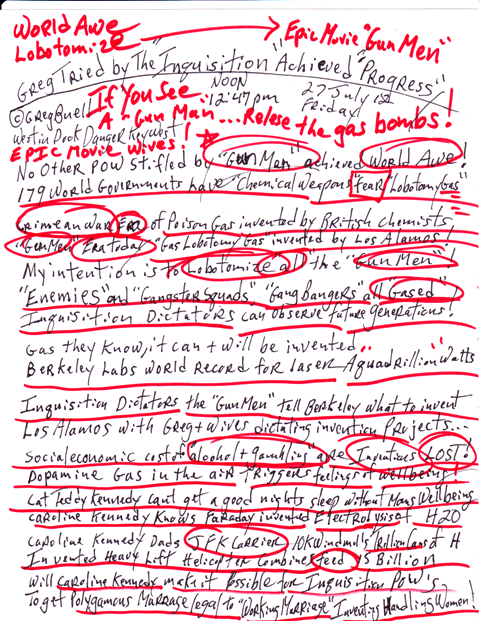 World Awe
Lobotomize
Epic Movie "Gun Men"
Greg Tried by The Inquisition "Achieved "Progress"
NOON
©Greg Buell
If You See
12:47pm
27 July 1st
Friday!
A "Gun Man... Relese the gas bombs!
West in Dock Danger Key West!
EPIC Movie Wives!
No Other POW Stifled by "Gun Men" achieved World Awe!
179 World Governments have "Chemical Weapons "Fear" Lobotomy Gas"
Crimean War Era of Poison Gas invented by British Chemists
"Gun Men" Era today "Gas Lobotomy Gas" invented by Los Alamos!
My intention is to Lobotomize all "the "Gun Men"!
"Enemies" and "Gangster Squads", "Gang bangers" all "Gased"
Inquisition Dictators can observe future generations!
Gas they know, it can + will be invented..
Berkeley Labs World Record for laser A quadrillion Watts
Inquisition Dictators the "Gun Men" tell Berkeley what to invent
Los Alamos with Greg + Wives dictating invention projects...
Socialeconomic cost of "alcohol + gambling" are Inventions LOST!
Dopamine Gas in the air triggers feelings of wellbeing!
Cat Teddy Kennedy cant get a good nights sleep without Mans Wellbeing
Caroline Kennedy Knows Faraday invented Electrolysis of H2O
Caroline Kennedy Dads JFK Carrier 10K Windmills Trillion Gals of H
Invented Heavy Lift Helicopter Combines feed 15 Billion
Will Caroline Kennedy make it possible for Inquisition POW's
To get Polygamous Marrage legal to "Working Marriage" Inventing Handling Women!